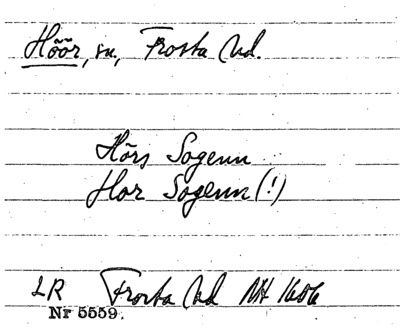 Höör, sn, Frosta hd.
Hörs Sogenn
Hor Sogenn (!)
LR Frosta hd MH 1686
Nr 5559.